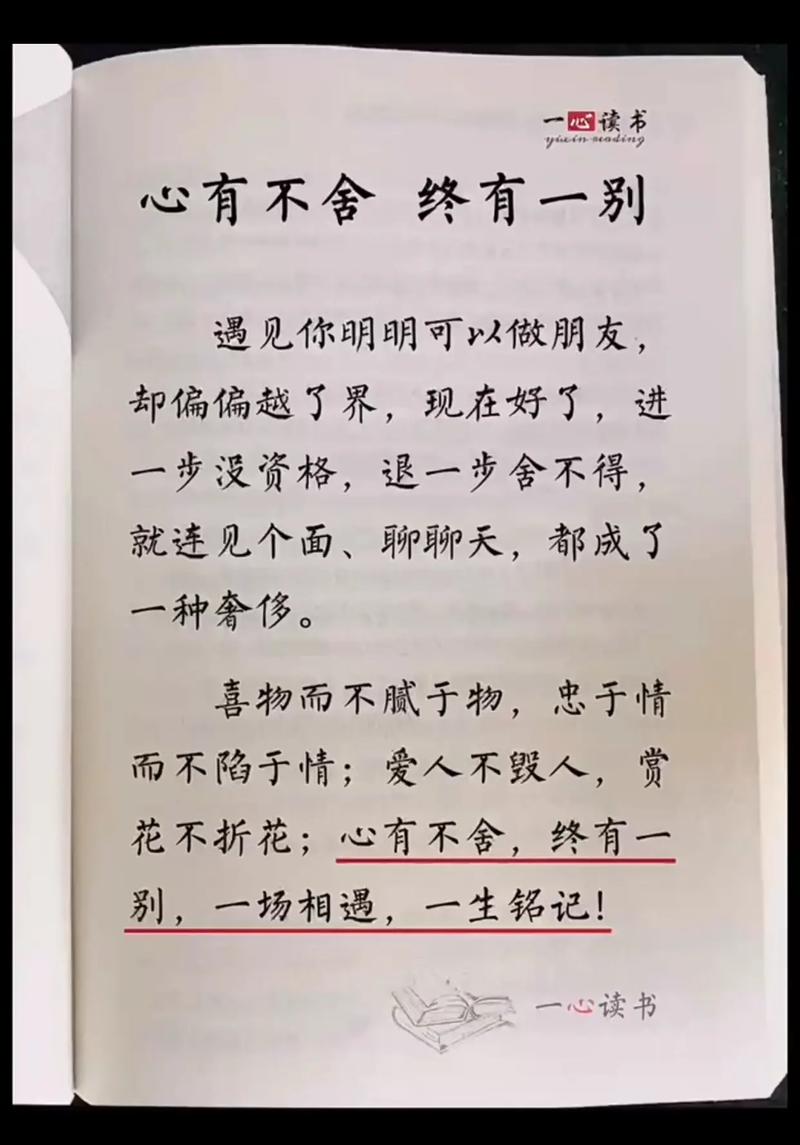 一心读书
yixin reading
心有不舍 终有一别
遇见你明明可以做朋友，
却偏偏越了界，现在好了，进
一步没资格，退一步舍不得，
就连见个面、聊聊天，都成了
一种奢侈。
喜物而不腻于物，忠于情
而不陷于情；爱人不毁人，赏
花不折花；心有不舍，终有一
别，一场相遇，一生铭记！
一心读书